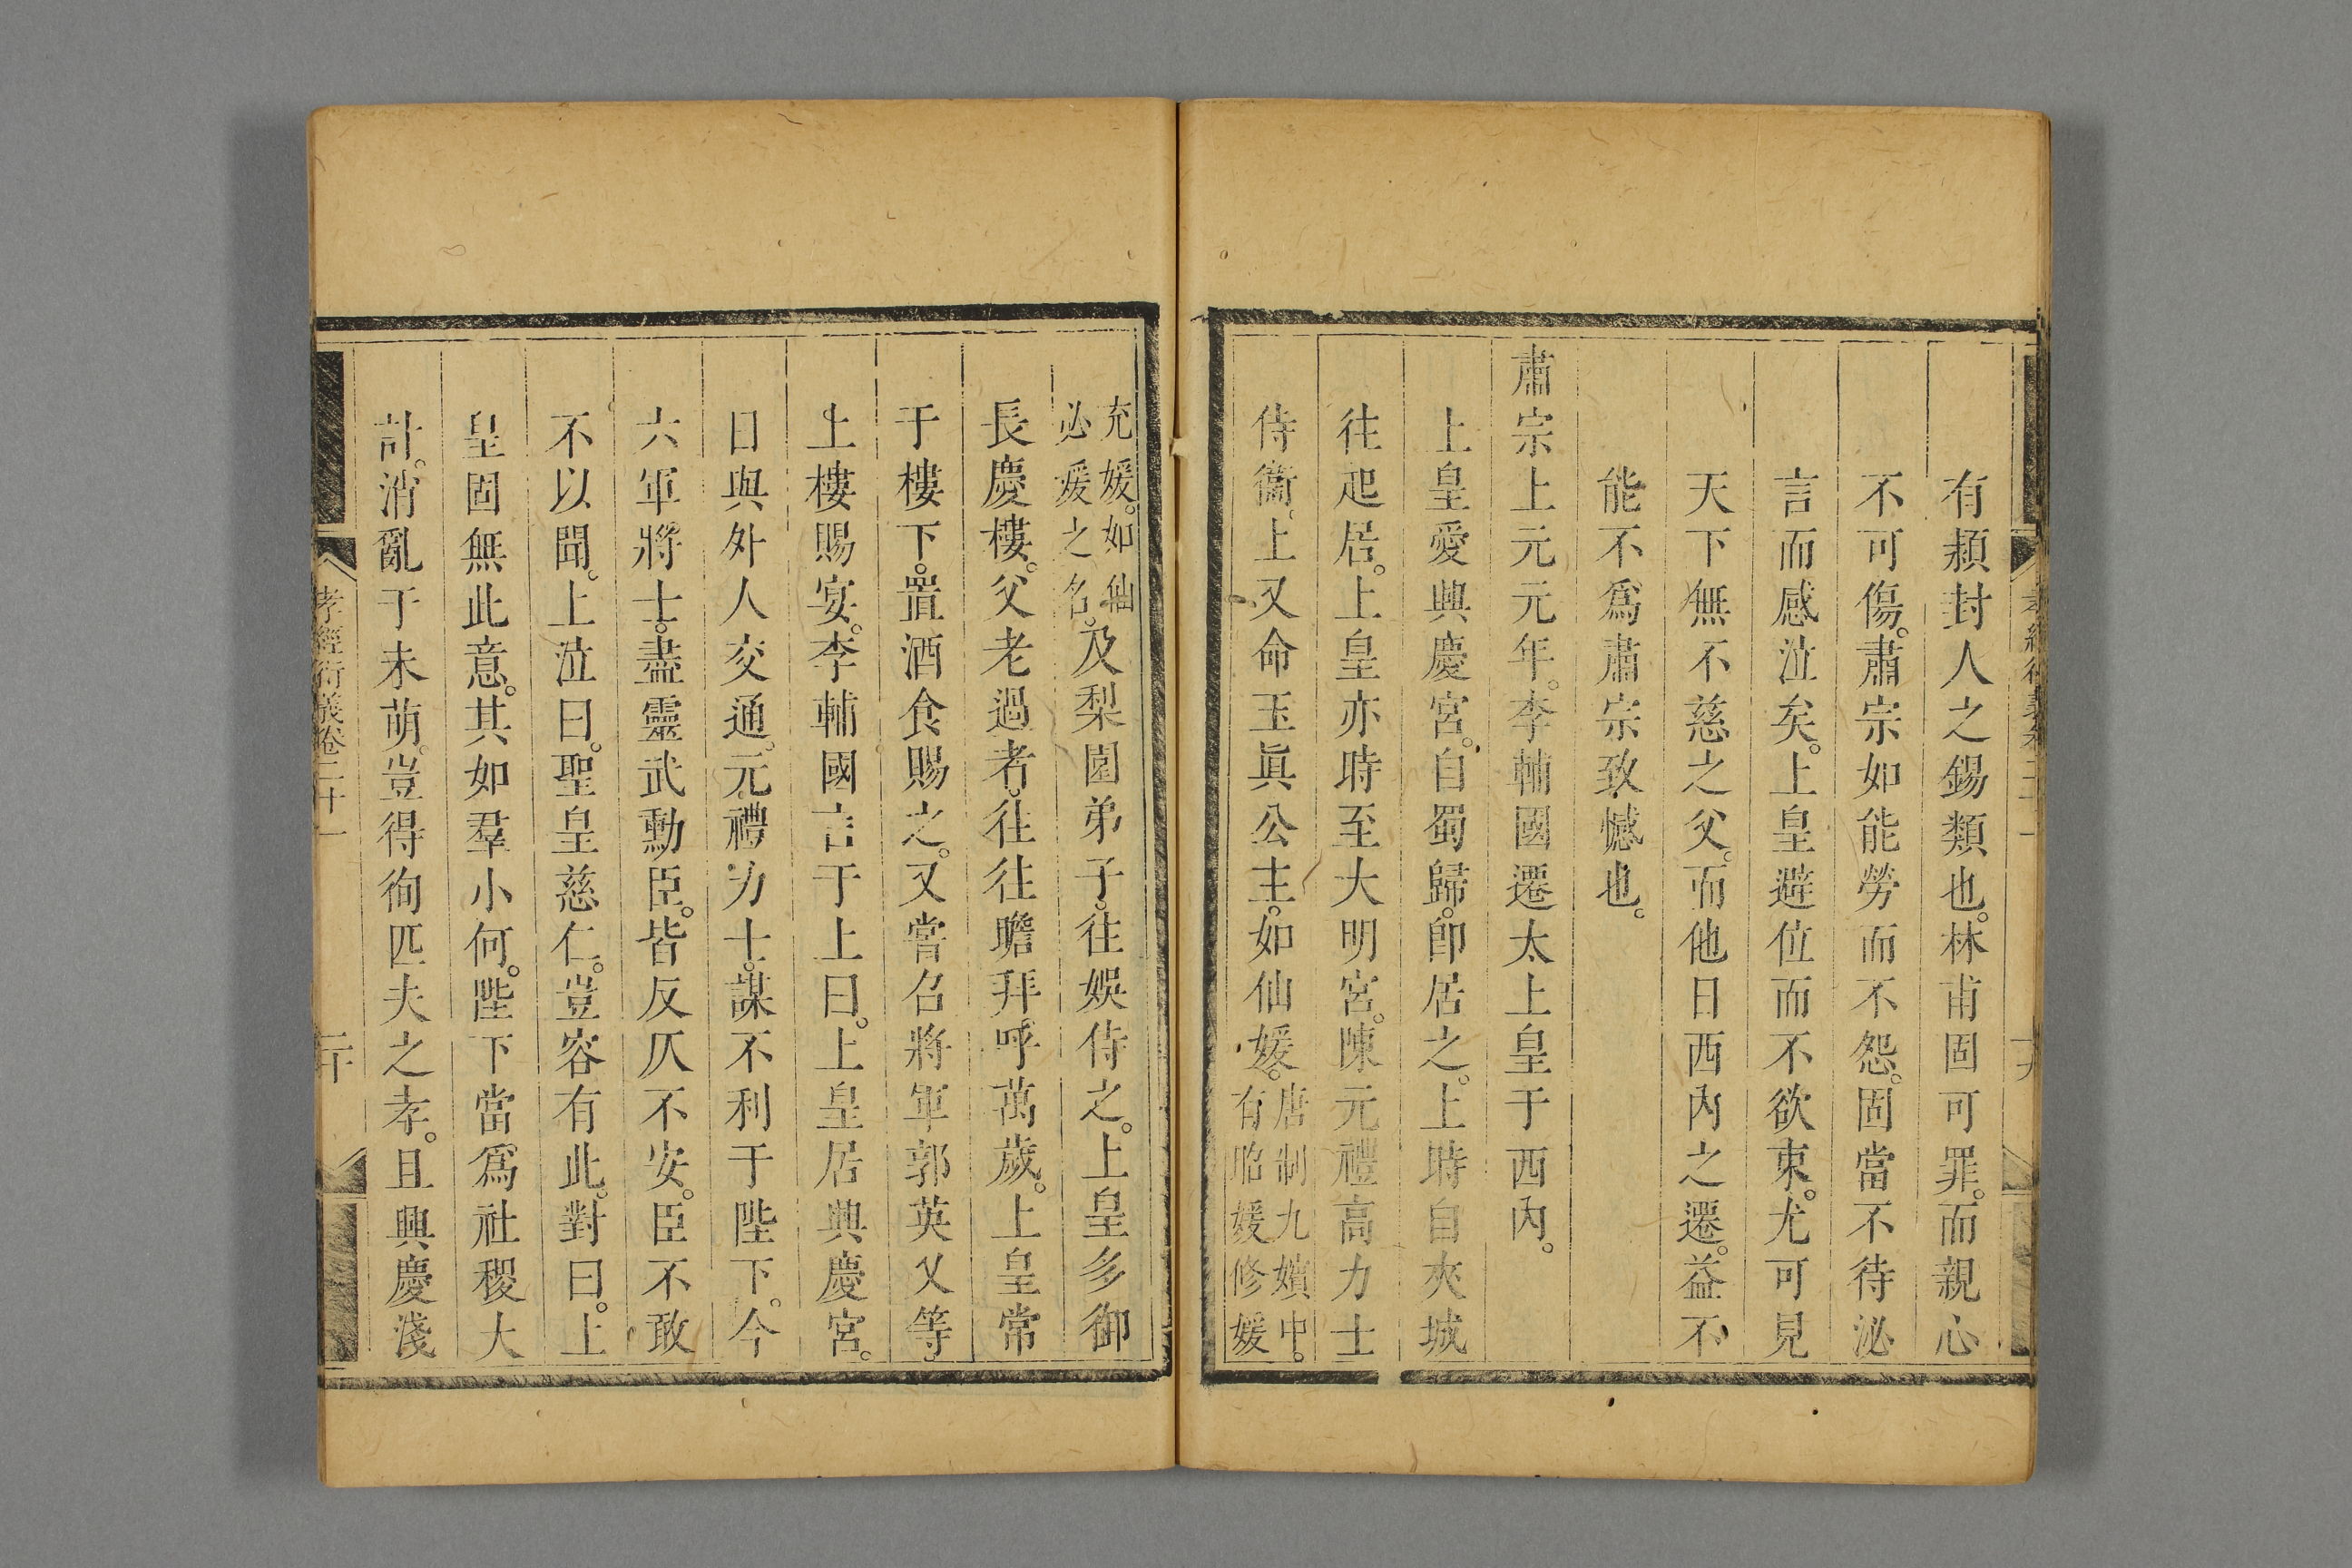 有潁封人之錫類也。林甫固可罪。而親心
不可傷。肅宗如能勞而不怨。固當不待泌
言而感泣矣。上皇避位而不欲東。尤可見
天下無不慈之父。而他日西內之遷。益不
能不爲肅宗致憾也。
肅宗上元元年。李輔國遷太上皇于西內。
上皇愛興慶宮。自蜀歸。卽居之。上時自夾城
往起居。上皇亦時至大明宮。陳元禮高力士
侍衞。上又命玉眞公主。如仙媛。唐制九嬪中。
有昭媛修媛
充媛。如仙
必媛之名。及梨園弟子。往娛侍之。上皇多御
長慶樓。父老過者。往往瞻拜呼萬歲。上皇常
于樓下。置酒食賜之。又嘗召將軍郭英乂等。
上樓賜宴。李輔國言于上曰。上皇居興慶宮。
日與外人交通。元禮力士。謀不利于陛下。今
六軍將士。盡靈武勳臣。皆反仄不安。臣不敢
不以聞。上泣曰。聖皇慈仁。豈容有此。對曰。上
皇固無此意。其如羣小何。陛下當爲社稷大
計。消亂于未萌。豈得徇匹夫之孝。且興慶淺
孝經衍義卷二十一
二十